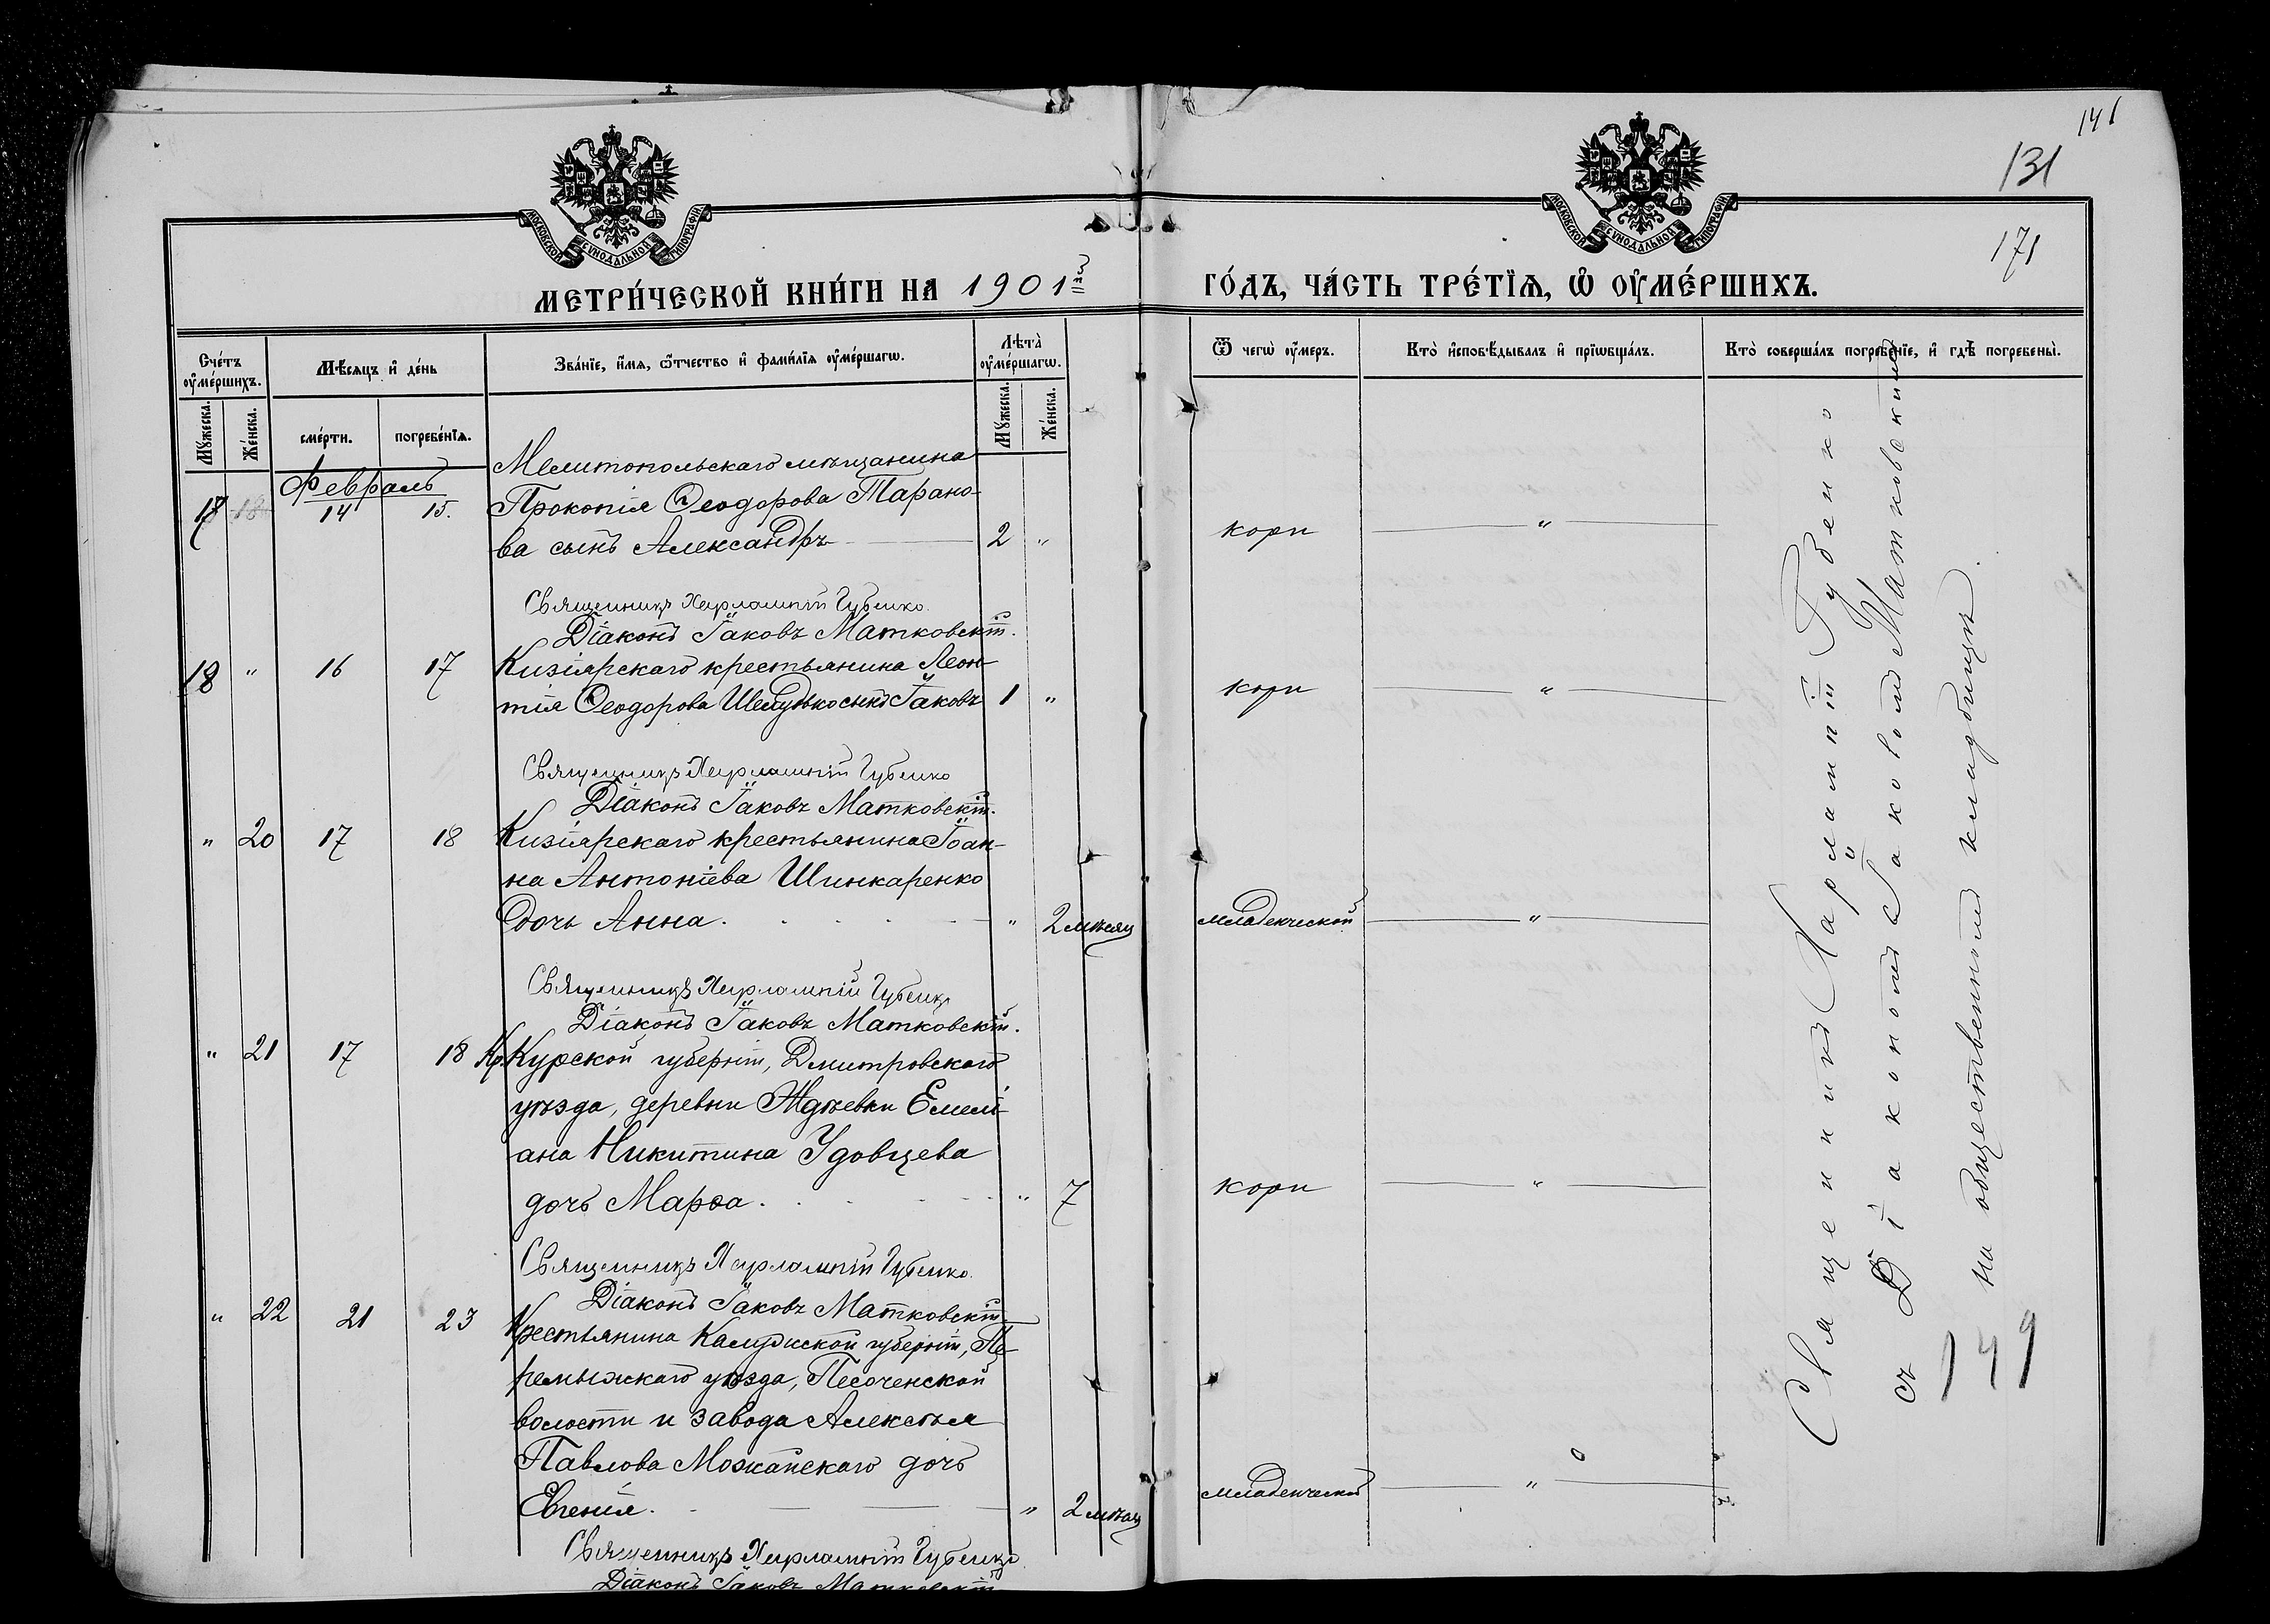 141
131
171
МОСКОВСКОЙ СУНОДАЛЬНОЙ ТИПОГРАФІИ
МОСКОВСКОЙ СУНОДАЛЬНОЙ ТИПОГРАФІИ
МЕТРИ́ЧЕСКОЙ КНИ́ГИ НА 1901й ГО́ДЪ, ЧА́СТЬ ТРЕ́ТЇѦ, Ѡ҆ ОУ҆МЕ́РШИХЪ.
Сче́тъ оу҆ме́ршихъ.
Мѣ́сяцъ и҆ де́нь
Зва́нїе, и҆́мѧ, ѻ҆́тчество и҆ фами́лїѧ оу҆ме́ршагѡ.
Лѣта̀ оу҆ме́ршагѡ.
Ѿ чегѡ̀ оу҆́меръ.
Кто̀ и҆сповѣ́дывалъ и҆ прїѡбща́лъ.
Кто̀ соверша́лъ погребе́нїе, и҆ гдѣ̀ погребены̀.
Мꙋ́жеска.
Же́нска.
сме́рти.
погребе́нїѧ.
Мꙋ́жеска.
Же́нска.
Февраль
Мелитопольскаго мѣщанина
17 18 14 15. Прокопія Ѳеодорова Тарано-
ва сынъ Александръ 2 " кори "
Священникъ Харлампій Губенко.
Діаконъ Іаковъ Матковскій.
18 " 16 17 Кизіярскаго крестьянина Леон-
тія Ѳеодорова Шелудько сынъ Іаковъ 1 " кори "
Священникъ Харлампій Губенко
Діаконъ Іаковъ Матковскій.
" 20 17 18 Кизіярскаго крестьянина Іоан-
на Антоніева Шинкаренко
дочь Анна. " 2 мѣсяц младенческой "
Священникъ Харлампій Губенко
Діаконъ Іаковъ Матковскій.
" 21 17 18 Кр. Курской губерніи, Дмитровскаго
уѣзда, деревни Ждѣевки Емелі-
ана Никитина Удовцева
дочь Марѳа. " 7 кори "
Священникъ Харлампій Губенко.
Діаконъ Іаковъ Матковскій
" 22 21 23 Крестьянина Калужской губерніи, Пе-
ремыжскаго уѣзда, Песоченской
волости и завода Алексѣя
Павлова Можайскаго дочь
Евгенія. " 2 мѣсяц младенческой "
Священникъ Харлампій Губенко
Діаконъ Іаковъ Матковскій
Священникъ Харлампій Губенко
съ Діакономъ Іаковомъ Матковскимъ
на общественномъ кладбищѣ.
149